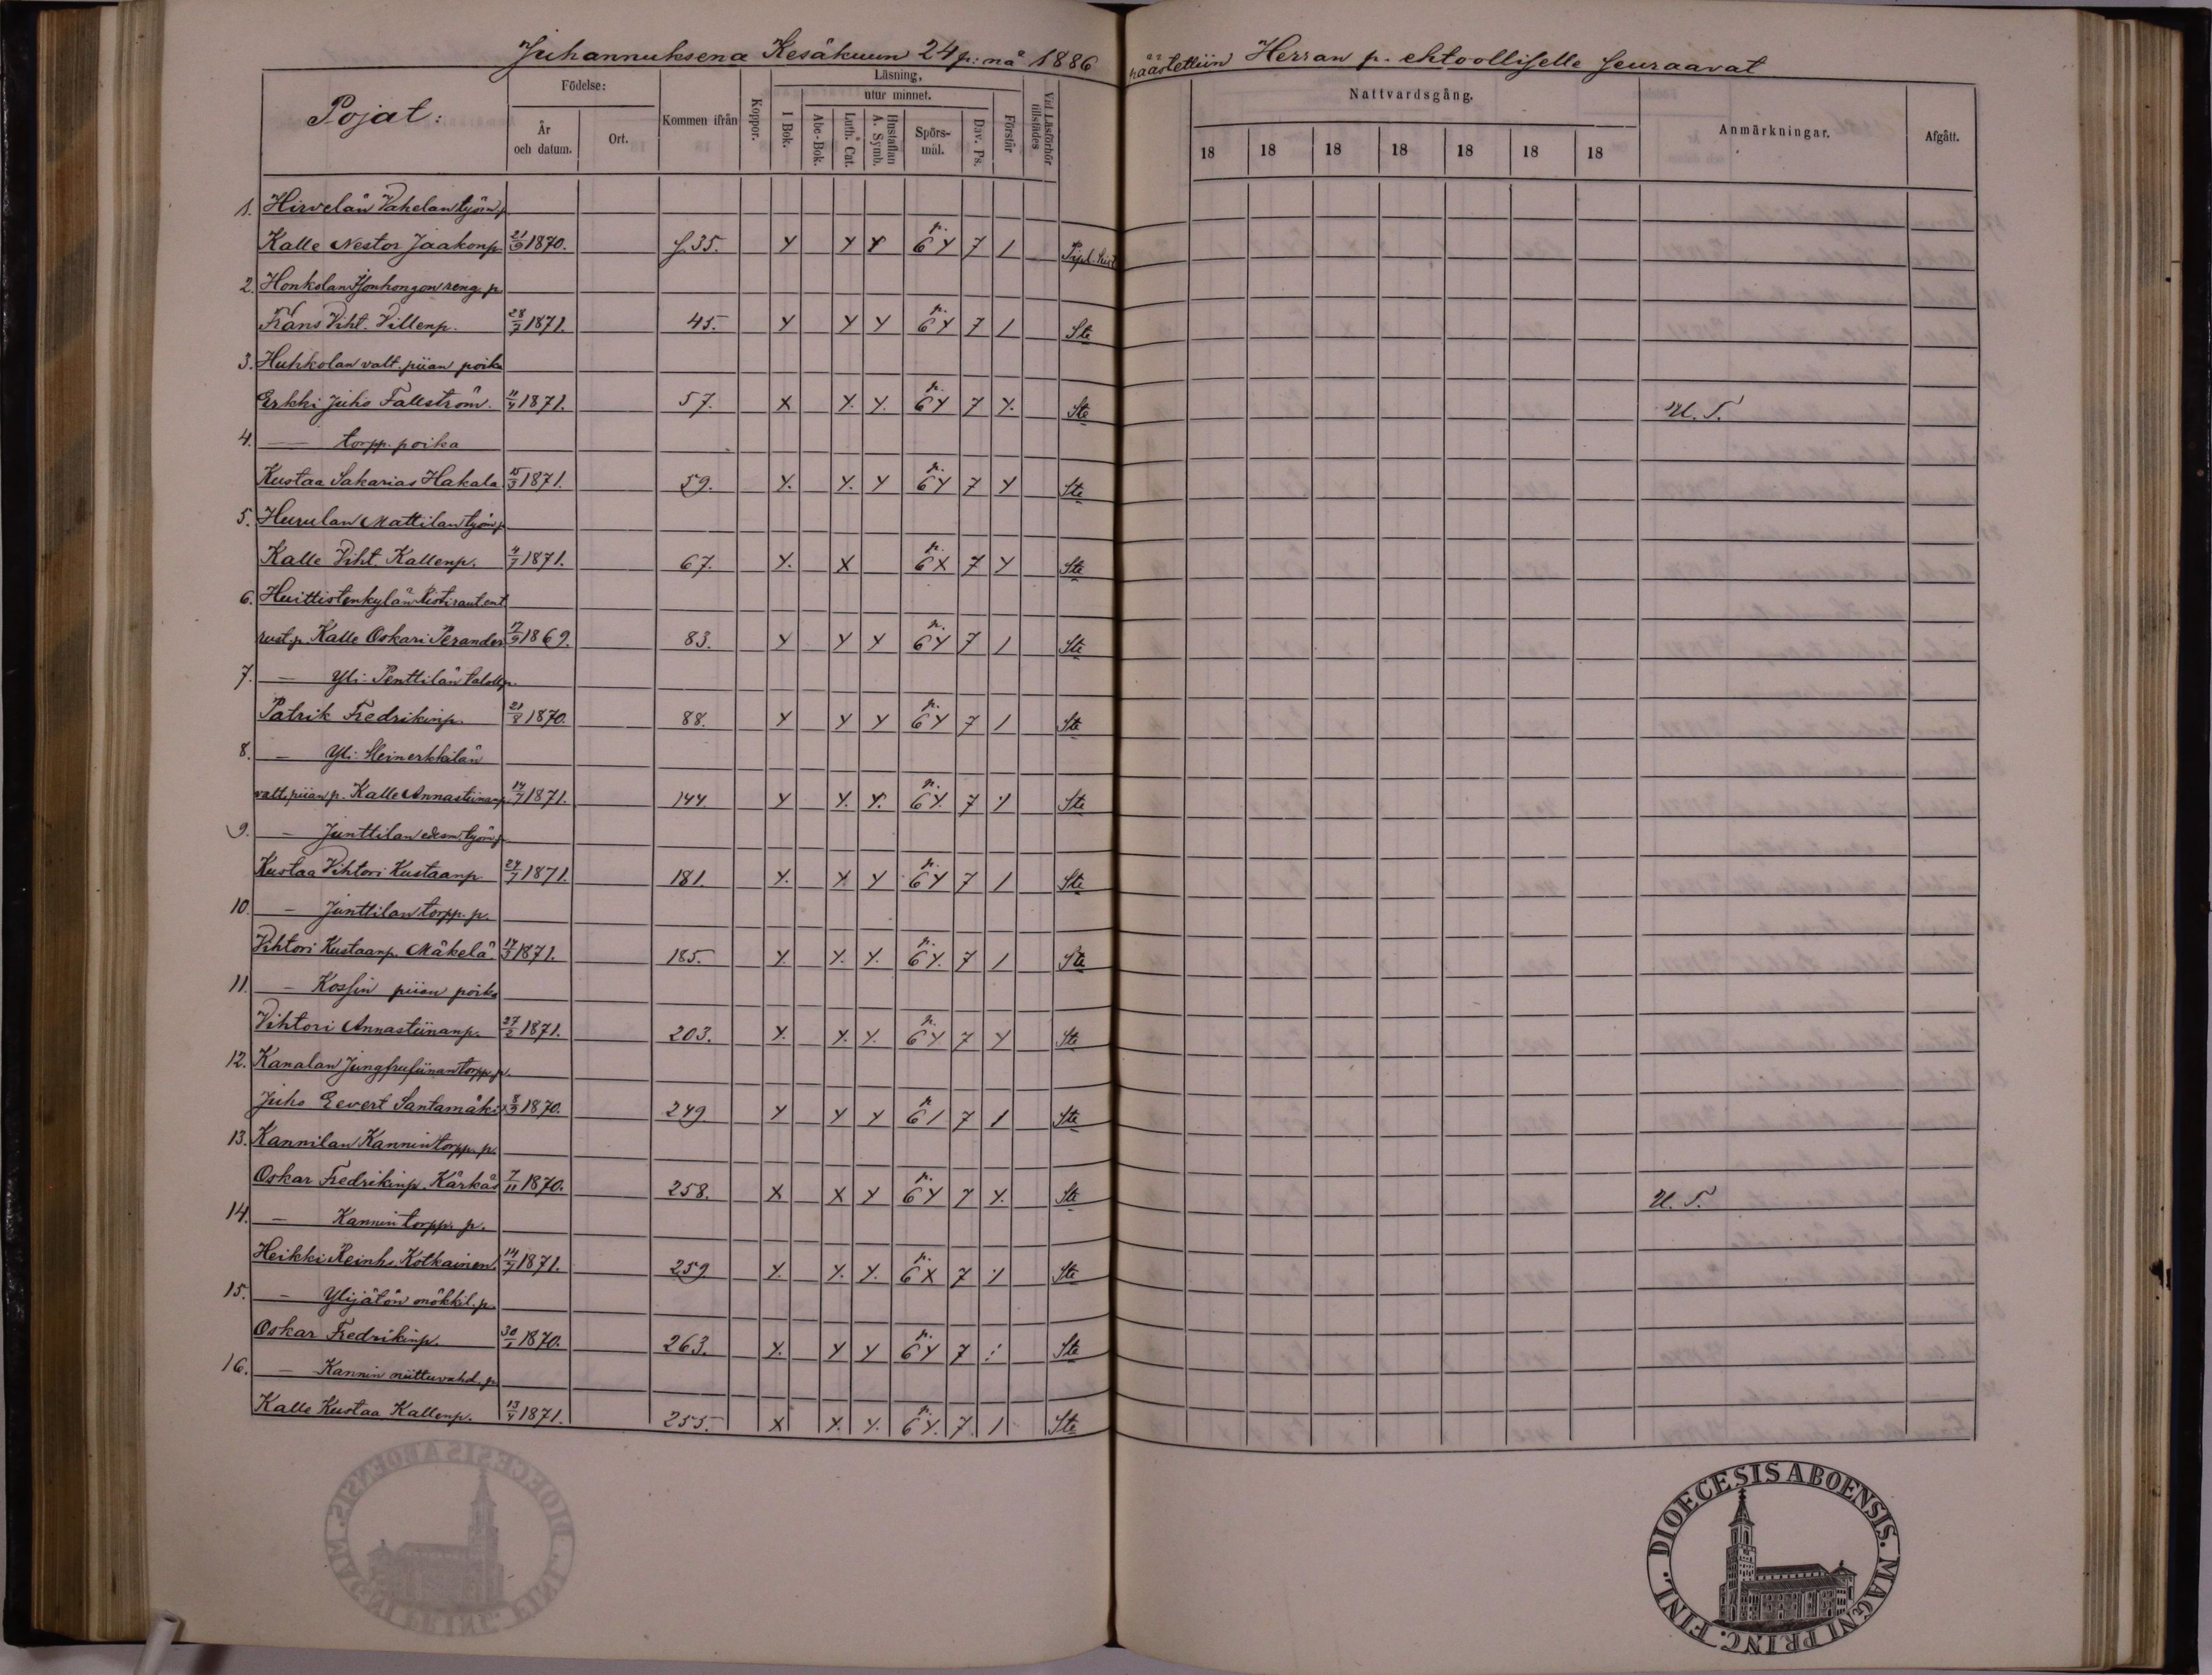 Juhannuksena Kesäkuun 24 p:nä 1886 päästettiin Herran p. ehtoolliselle seuraavat
Pojat:
Födelse:
År och datum.
Ort.
Kommen ifrån
Koppor.
Läsning,
utur minnet.
I Bok.
Abc-Bok.
Luth. Cat.
Hustaflan A. Symb.
Spörs-mål.
Dav. Ps.
Förstår
Vid Läsförhör tillstädes
Nattvardsgång.
18 18 18 18 18 18 18
Anmärkningar.
Afgått.
1. Hirvelän Vahelan työm. p.
Kalle Nestor Jaakonp. 21/9 1870. S. 35. Y Y Y p. 6 Y 7 1
2. Honkolan Honhongon reng. p.
Frans Viht. Villenp. 28/2 1871. 45. Y Y Y p. 6 Y 7 1 Ste
3. Huhkolan valt. piian poika
Erkki Juho Fallström. 11/4 1871. 57. X Y. Y. p. 6 Y 7 Y. Ste U. T.
4. — torpp. poika
Kustaa Sakarias Hakala 15/3 1871. 59. Y. Y. Y p. 6 Y 7 Y Ste
5. Hurulan Mattilan työm. p.
Kalle Viht. Kallenp. 4/7 1871. 67. Y. X p. 6 X 7 Y Ste
6. Huittistenkylän Ristiraut. ent
rust. p. Kalle Oskari Perander 17/9 1869. 83. Y Y Y p. 6 Y 7 1 Ste
7. — Yli-Penttilän taloll. p.
Patrik Fredrikinp. 21/8 1870. 88. Y Y Y p. 6 Y 7 1 Ste
8. — Yli-Heinerkkilän
valt. piian p. Kalle Annastiinanp. 14/7 1871. 144 Y Y. Y. p. 6 Y. 7 Ste
9. — Junttilan edesm. työm. p.
Kustaa Vihtori Kustaanp. 24/7 1871. 181. Y. Y Y p. 6 Y 7 1 Ste
10. — Junttilan torpp. p.
Vihtori Kustaanp. Mäkelä 17/3 1871. 185. Y. Y. Y. p. 6 Y. 7 1 Ste
11. — Kossin piian poika
Vihtori Annastiinanp. 27/2 1871. 203. Y. Y. Y. p. 6 Y 7 Y Ste
12. Kanalan Jungfrusiinan torpp. p.
Juho Eevert Santamäki 8/3 1870. 249 Y Y Y p 6 1 7 1 Ste
13. Kannilan Kannin torpp. p.
Oskar Fredrikinp. Kärkäs 7/11 1870. 258. X X Y p. 6 Y 7 Y. Ste U. T.
14. — Kannin torpp. p.
Heikki Reinh. Kotkainen. 14/7 1871. 259 Y. Y. Y. p. 6 X 7 Ste
15. — Ylijätön mökkil. p.
Oskar Fredrikinp. 30/1 1870. 263. Y. Y Y p. 6 Y 7 Ste
16. — Kannin niittuvahd. p.
Kalle Kustaa Kallenp. 13/4 1871. 255. X Y. Y. p. 6 Y. 7 1 Ste
DIOECESIS ABOENSIS. MAGNI PRINC. FINL.